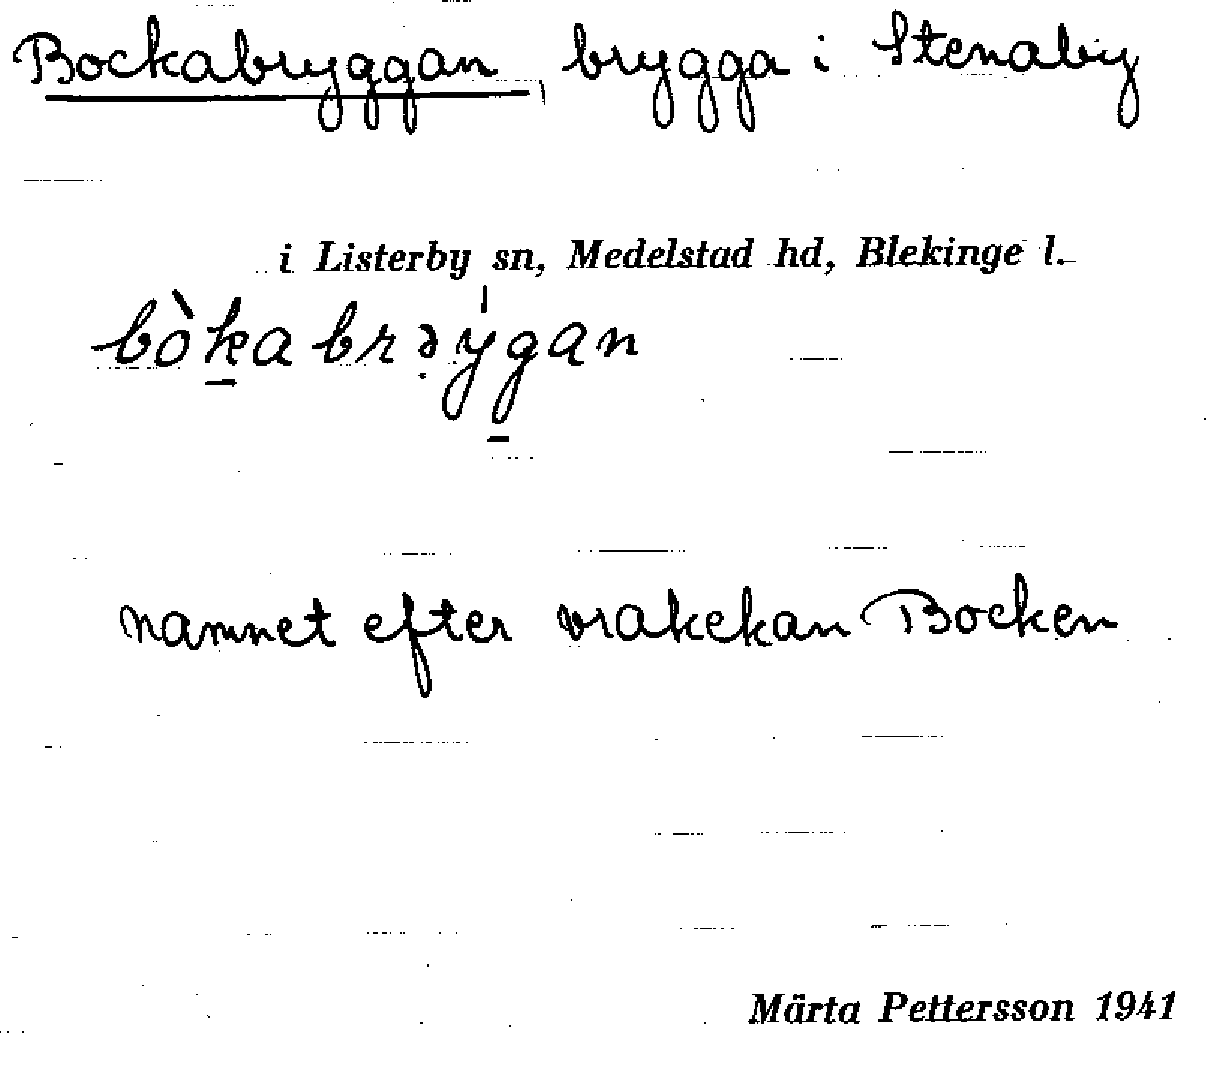 Bockabryggan, brygga i Stenaby
i Listerby sn, Medelstad hd, Blekinge l.
bòka brəygan
namnet efter vrakekan Bocken
Märta Pettersson 1941